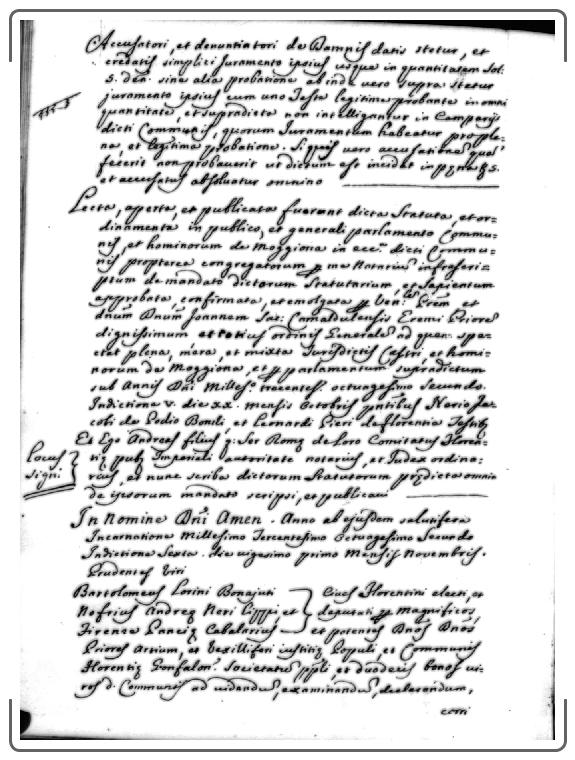 Accusatori, et denuntiatori de Damnis datis stetur, et
credatis simplici Juramento ipsius usque in quantitatem Sol:
5. den: sine alia probatione ab inde vero supra stetur
juramento ipsius cum uno Teste legitime probante in omni
quantitate, et supradicta non intelligantur in Camperijs
dicti Communis, quorum Juramentum habeatur pro ple-
na, et legitima probatione. Si quis vero accusationem quam
fecerit non probaverit ut dictum est incidat in 5.
et accusatus absolvatur omnino
Lecta, aperta, et publicata fuerunt dicta Statuta, et or-
dinamenta in publico, et generali parlamento Commu-
nis, et hominorum de Moggiona in eccª dicti Commu-
nis propterea congregatorum p me Notarium infrascri-
ptum de mandato dictorum Statutariorum, et Sapientum
approbata, confirmata, et emolgata p Ven: Prem et
dnum Dnum Joannem Sac: Camaldulensis Eremi Priore
dignissimum et totius ordinis Generale ad quem spe-
ctat plena, mera, et mixta Jurisdictio Castri, et homi-
norum de Moggiona, et p parlamentum supradictum
sub Annis Dni Milles.º trecentes. octuagesimo Secundo.
Indictione V. die XX. mensis Octobris pntibus Nerio Ja-
cobi de Podio Bonili, et Leonardi Pieri de florentia Testib
Et Ego Andreas filius q: Ser Romę de loro Comitatus Floren-
Locus tię pub Imperiali autoritate notarius, et Judex ordina-
Signi rius, et nunc scriba dictorum Statutorum prędicta omnia
de ipsorum mandato scripsi, et publicavi
In Nomine Dni Amen. Anno ab ejusdem salutifera
Incarnatione Millesimo Tercentesimo Octuagesimo Secundo
Indictione Sexta. die vigesimo primo Mensis Novembris.
Prudentes Viri
Bartolomeus Lorini Bonajuti Cives Florentini electi, et
Nofrius Andreę Neri Lippi, et deputati p Magnificos,
Firenze Pancię Cabalarius et potentes Dnos Dnos
Priores Artium, et Vexilliferi iustitię Populi et Communis
Florentię Gonfalon. Societatum ppli, et duodecim bonos vi-
ros d. Communis ad videndum, examinandum, declarandum,
corri